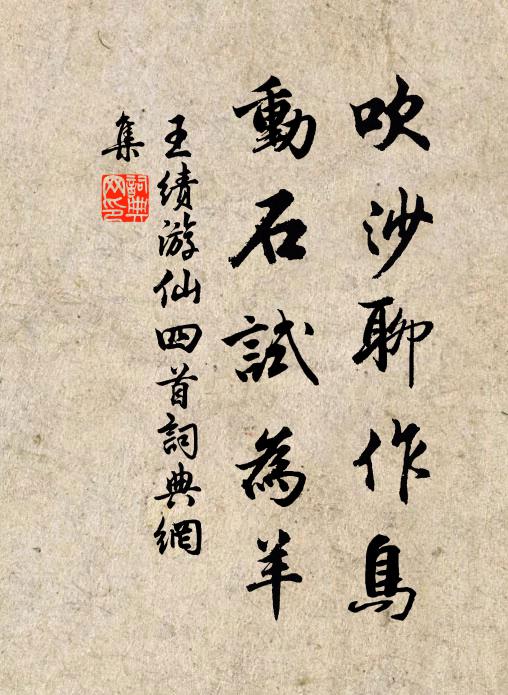 吹沙聊作鳥
動石試為羊
王績游仙四首詞典網
集
詞典
网印